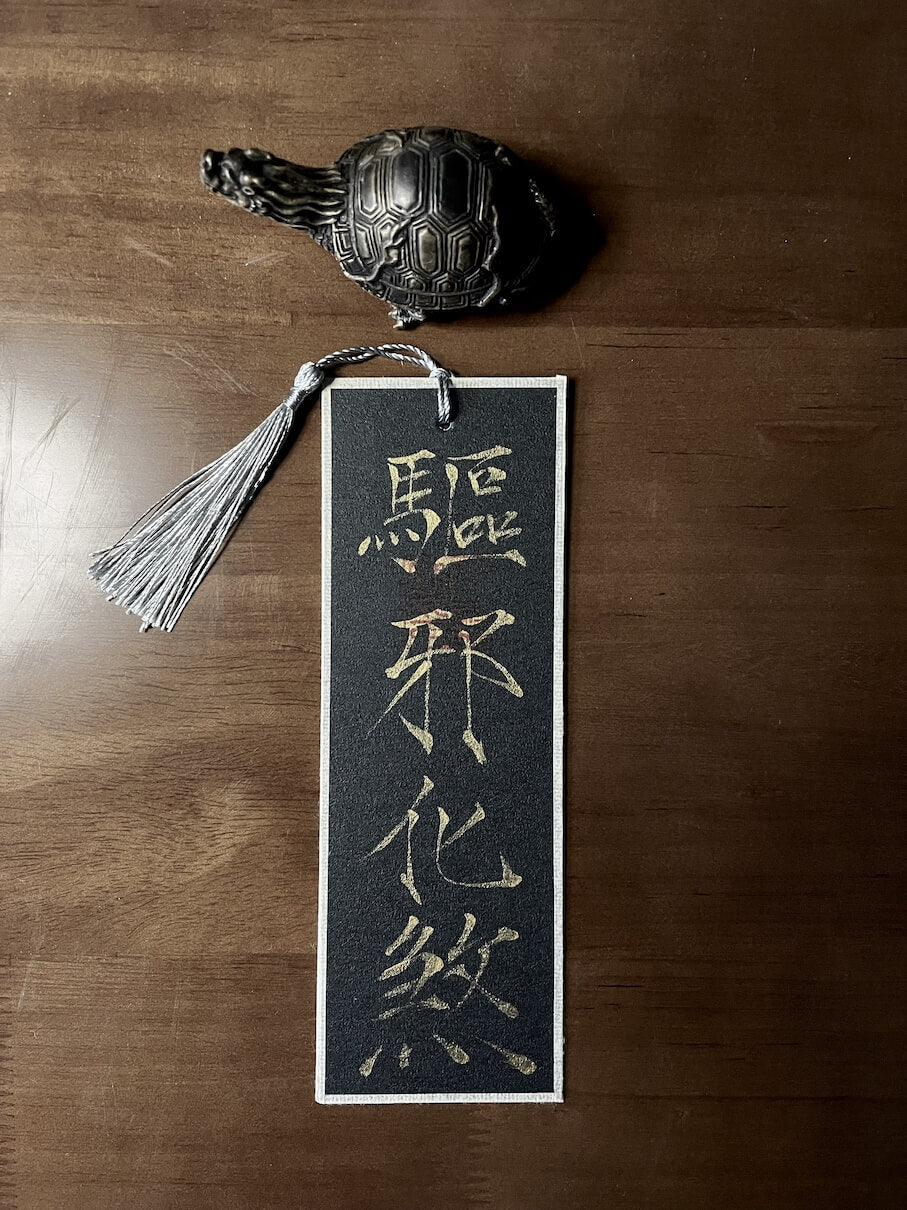 驅邪化煞